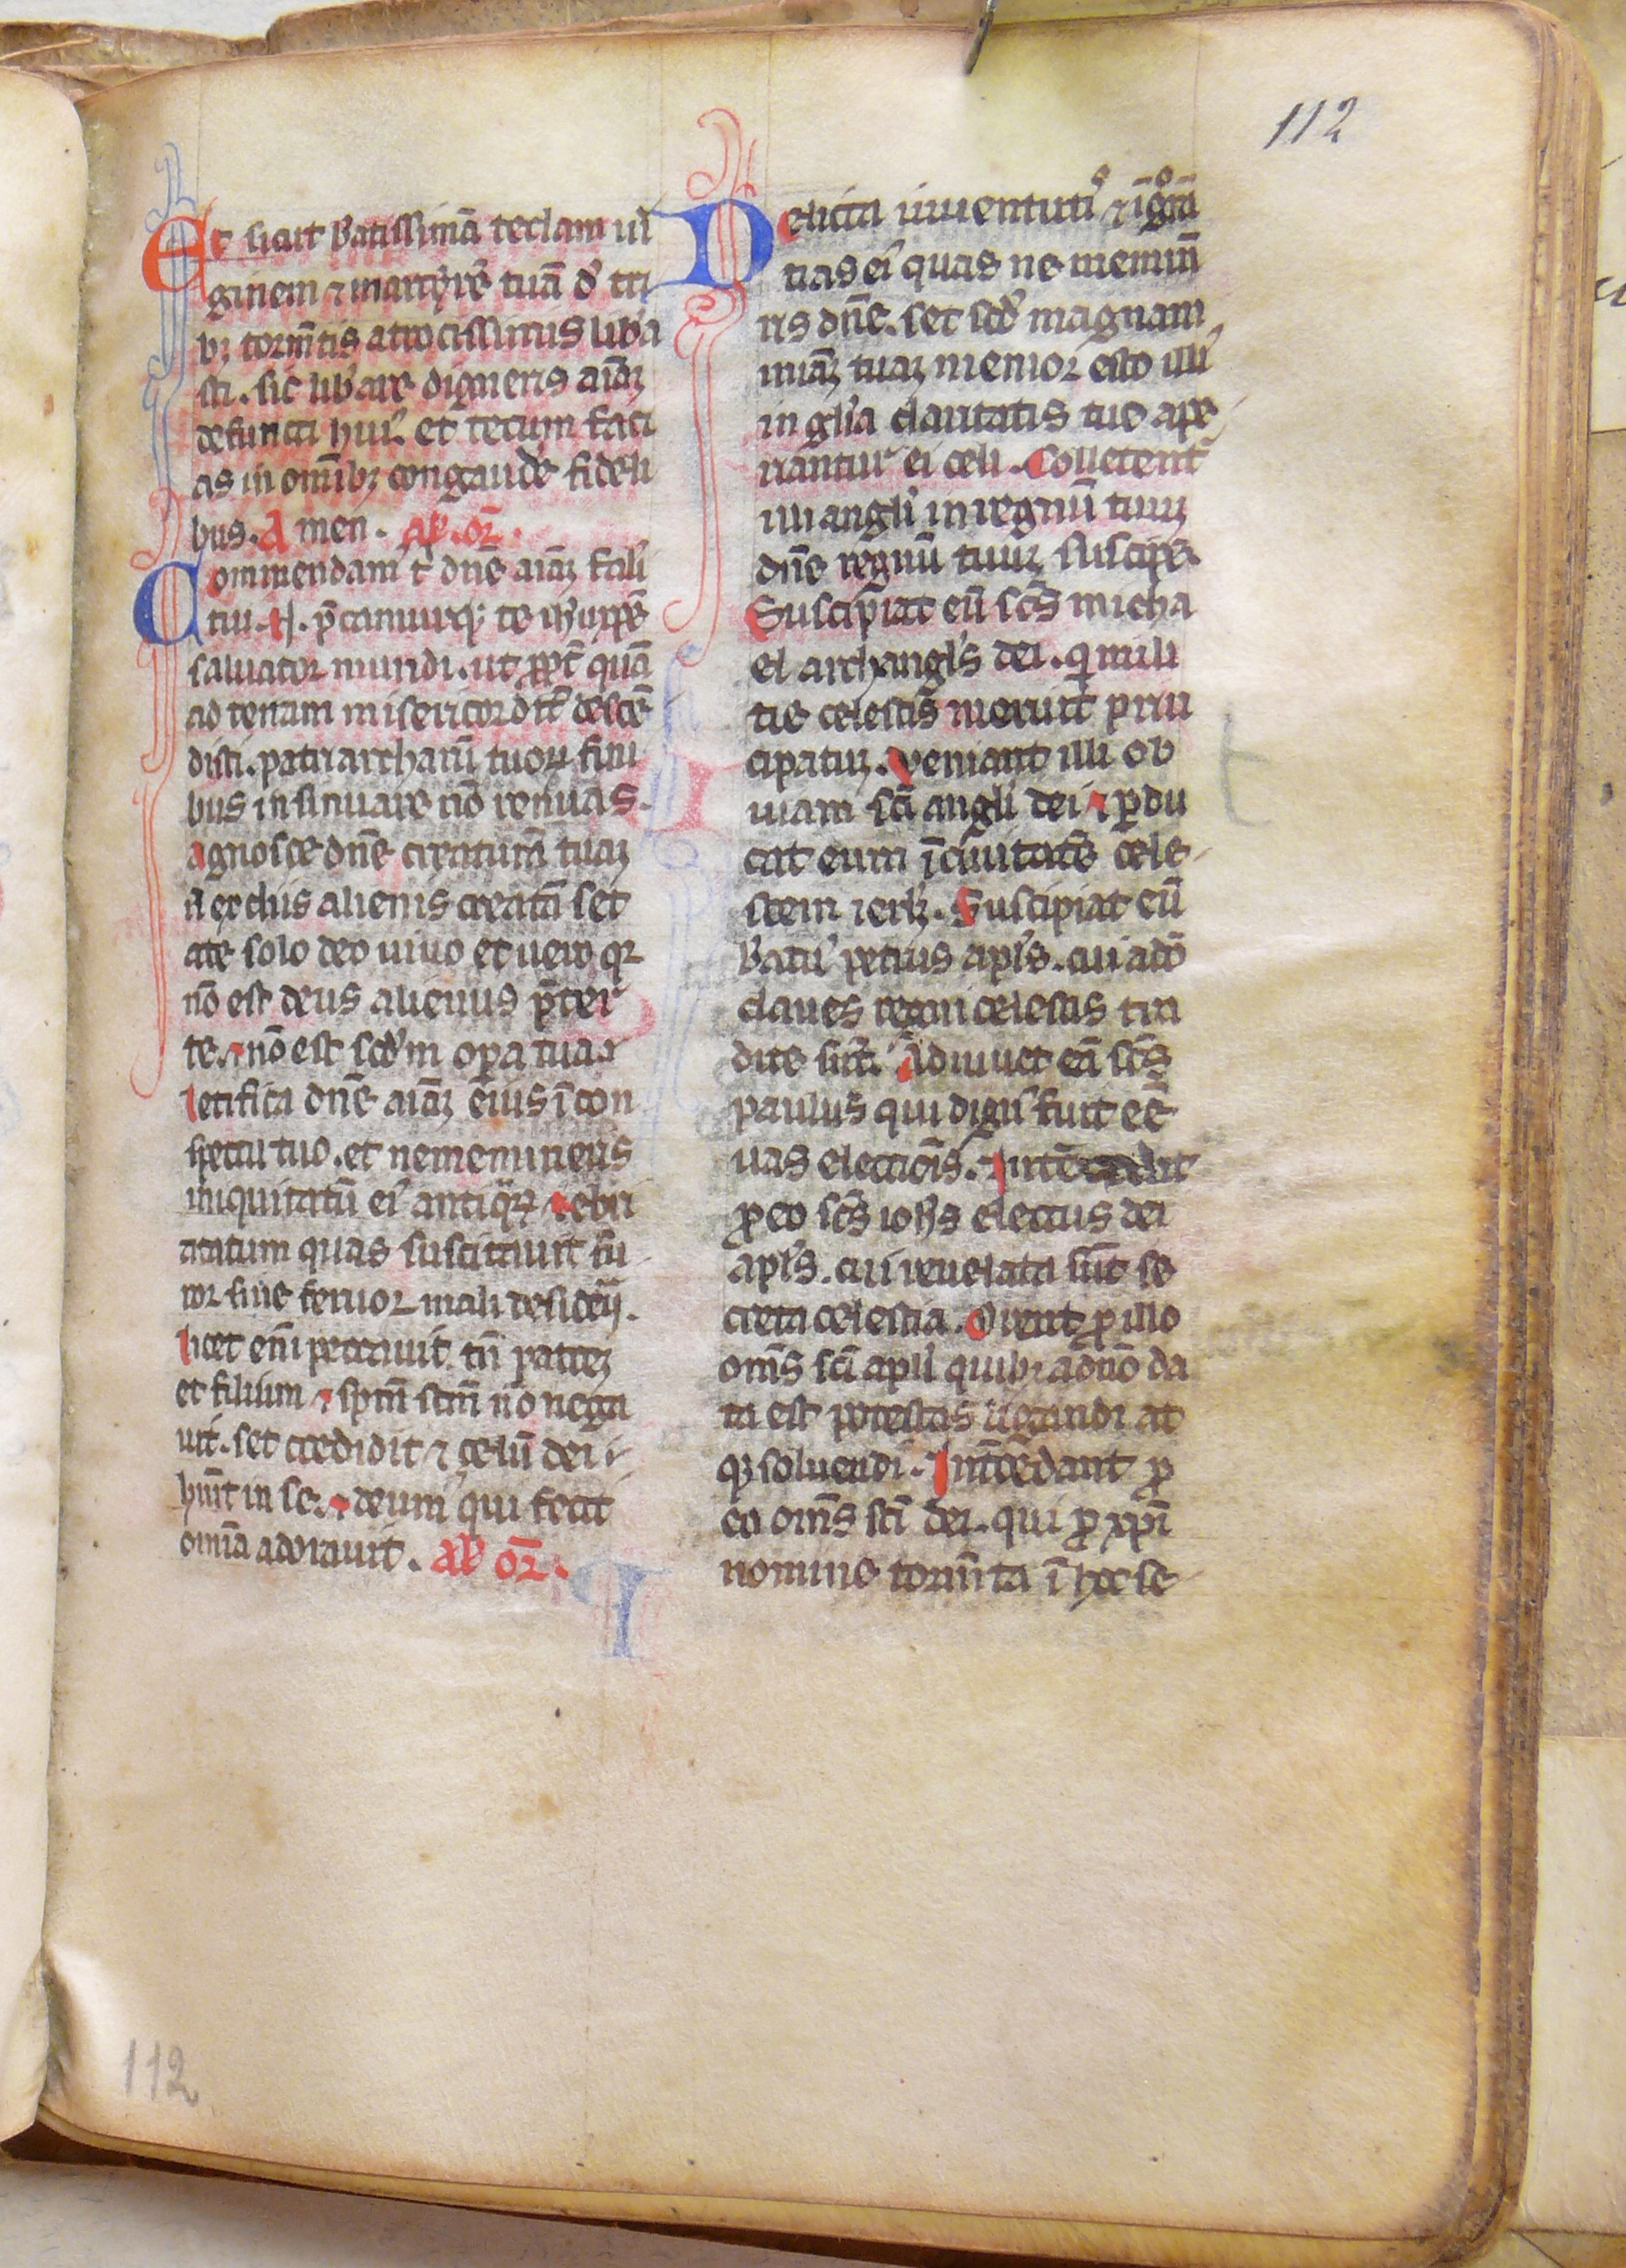 112
Et sicut b̓atissimā teclam uir
ginem ⁊ martyrē tuā d̓ tri
bꝫ tormn̄tis atrocissimis lib̓a
sti. sic lib̓are digneris aīaꝫ
defuncti hui᷒. et tecum faci
as in omībꝫ congaud̓e fideli
bus. Amen. Al̓. or̄.
Commendam᷒ t̄ dn̄e aīaꝫ fałi
tui .N. p̄camurqꝫ te ih̓u xp̄e
saluator mundi. ut ꝓpt̄ quā
ad terram misericordit̓ descē
disti. patriarcharū tuoꝝ sini
bus insinuare nō renuas.
Agnosce dn̄e creaturā tuaꝫ
n̄ ex diis alienis creatā set
a te solo deo uiuo et uero qꝛ
nō est deus alienus p̄ter
te. ⁊ nō est scd̓m oꝑa tua.
letifica dn̄e aīaꝫ eius ī con
spectu tuo. et ne memineris
iniquitatū ei᷒ antiqꝛꝝ ⁊ ebri
atatum quas suscitauit fu
ror siue feruor mali desiderij.
licet enī peccauit. tn̄ patreꝫ
et filium ⁊ sp̄m scm̄ nō nega
uit. set credidit ⁊ celū dei
hūit in se. ⁊ deum qui fecit
omīa adorauit. Al̓ or̄.
Delicta iuuentuti᷒ ⁊ īgrā
tias ei᷒ quas ne memin̄
ris dn̄e. set scd̓ magnam
miāꝫ tuaꝫ memor esto illi᷒
in gl̓ia claritatis tue ape
riantur ei celi. Colletent̄
illi angl̓i in regnū tuuꝫ
dn̄e regnū tuuꝫ suscipe.
Suscipiat eū scs̄ micha
el archangl̓s dei. qͥ mili
tie celestis meruit prin
cipatuꝫ. Veniant illi ob
uiam scī angl̓i dei ⁊ ꝑdu
cat eum ī ciuitatē cele
stem ierl̓ꝫ. Suscipiat eū
b̓atu᷒ petrus apl̓s. cui a dō
claues regni celestis tra
dite sūt. Adiuuet eū scs̄
paulus qui dign᷒ fuit eē
uas electiōis. Intercedat
ꝓ eo scs̄ ioh̓s electus dei
apl̓s. cui reuelata sūt se
creta celestia. Orent ꝓ illo
omēs scī apl̓i quibꝫ a dn̄o da
ta est potestas ligandi at
qꝫ soluendi. Intercedant ꝓ
eo omēs scī dei. qui ꝓ xp̄i
nomine tormn̄ta ī hoc se
112